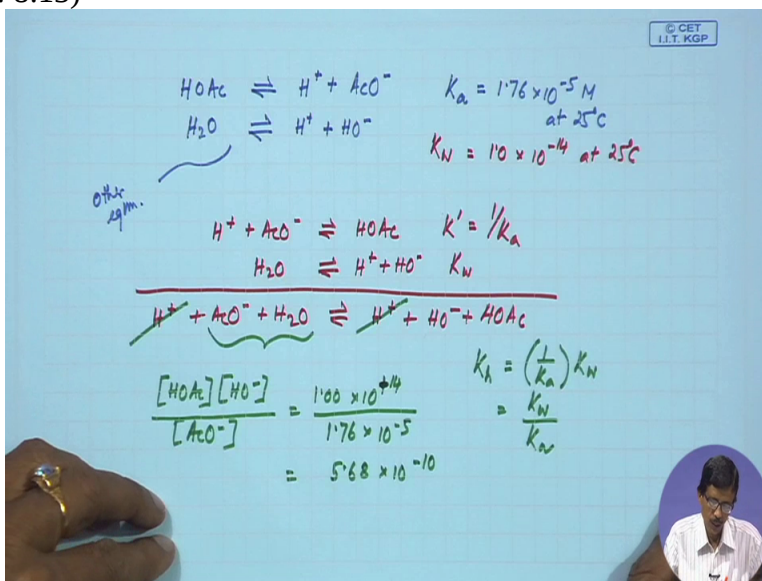 © CET
I.I.T. KGP
HOAc ⇌ H⁺ + AcO⁻ Ka = 1.76 × 10⁻⁵ M
at 25°C
H₂O ⇌ H⁺ + HO⁻
Kw = 1.0 × 10⁻¹⁴ at 25°C
other
eqm.
H⁺ + AcO⁻ ⇌ HOAc K' = 1/Ka
H₂O ⇌ H⁺ + HO⁻ Kw
H⁺ + AcO⁻ + H₂O ⇌ H⁺ + HO⁻ + HOAc
Kh = (1/Ka) Kw
= Kw/Ka
[HOAc][HO⁻]/[AcO⁻] = 1.00 × 10⁻¹⁴/1.76 × 10⁻⁵
= 5.68 × 10⁻¹⁰